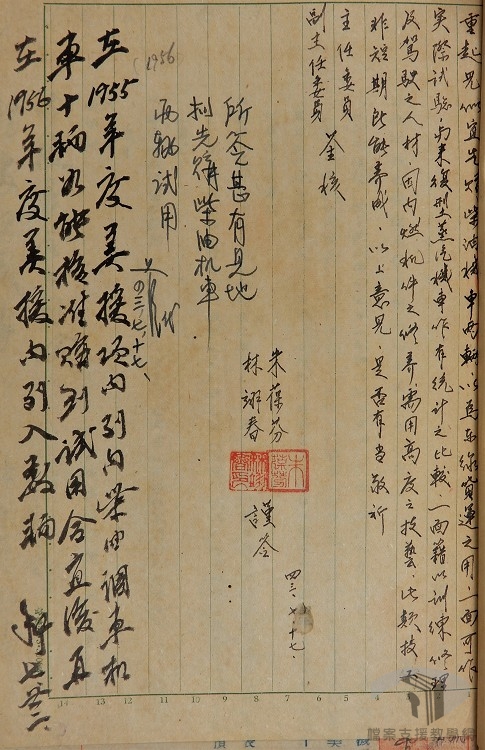 重起見似宜先購柴油機車兩輛以為東線貨運之用一面可作
實際試驗,與未復型蒸汽機車作有統計之比較,一面藉以訓練修理
及駕駛之人材,因內燃機件之修養,需用高度之技藝,此類技工
非短期所能養成,以上意見,是否有當敬祈
主任委員
副主任委員
鑒核
朱葆芬
林翊春
謹簽
四三、七、十七、
所簽甚有見地
擬先購柴油机車
兩輛試用
四三、七、十七、
(1956
在1955年度美援項內列內柴油調車机
車十輛如能核准購到試用合宜後再
在1956年度美援內列入數輛
14 13 12 11 10 9 8 7 6 5 4 3 2 1
檔案支援教學網